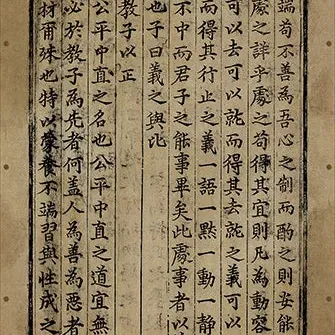 端苟不善為吾心之制而酌之則安能
處之詳乎處之苟得其宜則凡為動容
可以去可以就而得其去就之義可以
而得其行止之義一語一黙一動一静
不中而君子之能事畢矣此處事者以
也子曰義之與比
教子以正
公平中直之名也公平中直之道宜無
必於教子為先者何盖人為善為惡者
材爾殊也特以蒙養不端習與性成之